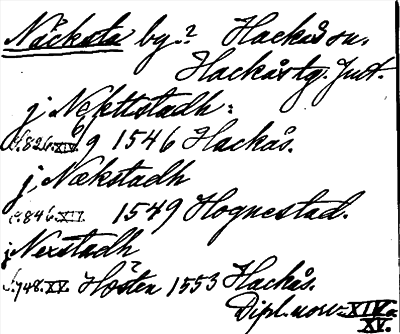 Näcksta by? Hackås sn.
Hackås tg. Jmt.
j Nefstistadh:
s. 826. XIV. 9/9 1546 Hackås.
j Nækstadh
s. 846. XIV. 1549 Hognestad.
j Nexstadh
s. 748. XV. Hösten? 1553 Hackås.
Dipl. norv. XIV o.
XV.